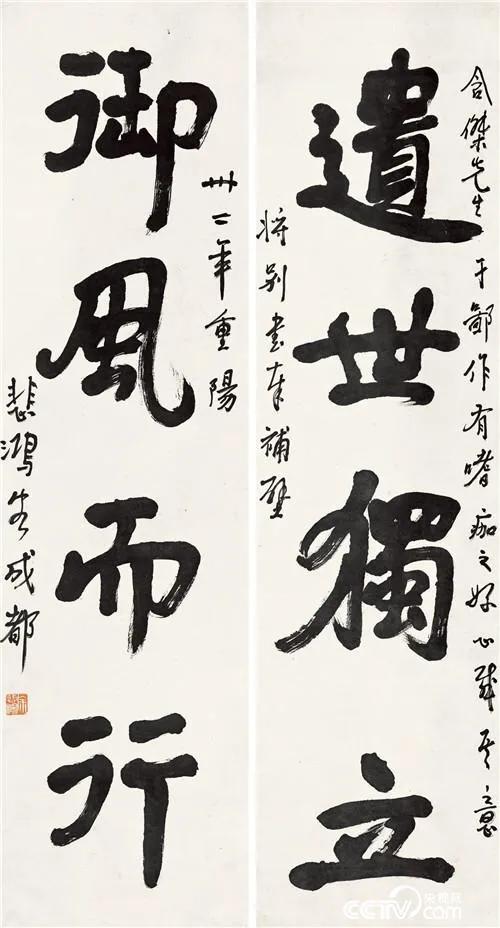 含傑先生于鄙作有嗜痂之好心感意
遺世獨立
将别書奉補壁
卅二年重陽
御風而行
悲鴻客成都
央视网
CCTV.com